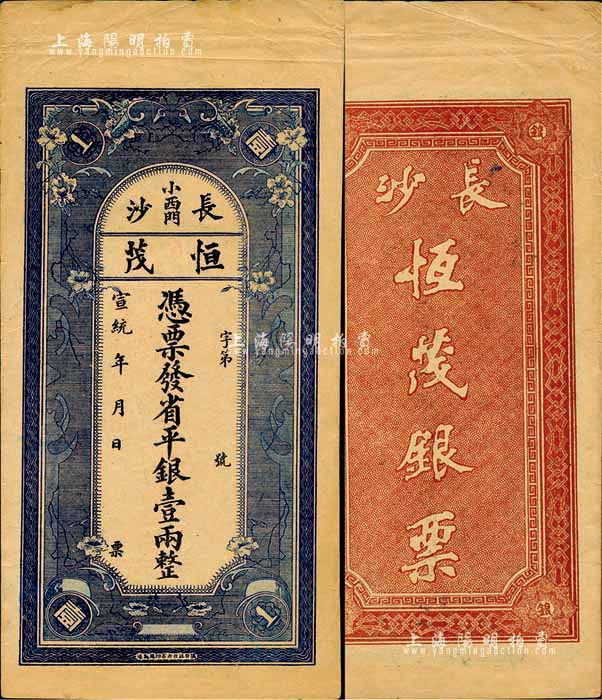 上海陽明拍賣
www.yangmingauction.com
壹
1
長沙
小西門
恒茂
字第 號
憑票發省平銀壹兩整
宣統 年 月 日 票
壹
1
長沙
恒茂銀票
銀
上海陽明拍賣
www.yangmingauction.com
上海陽明拍賣
www.yangmingauction.com